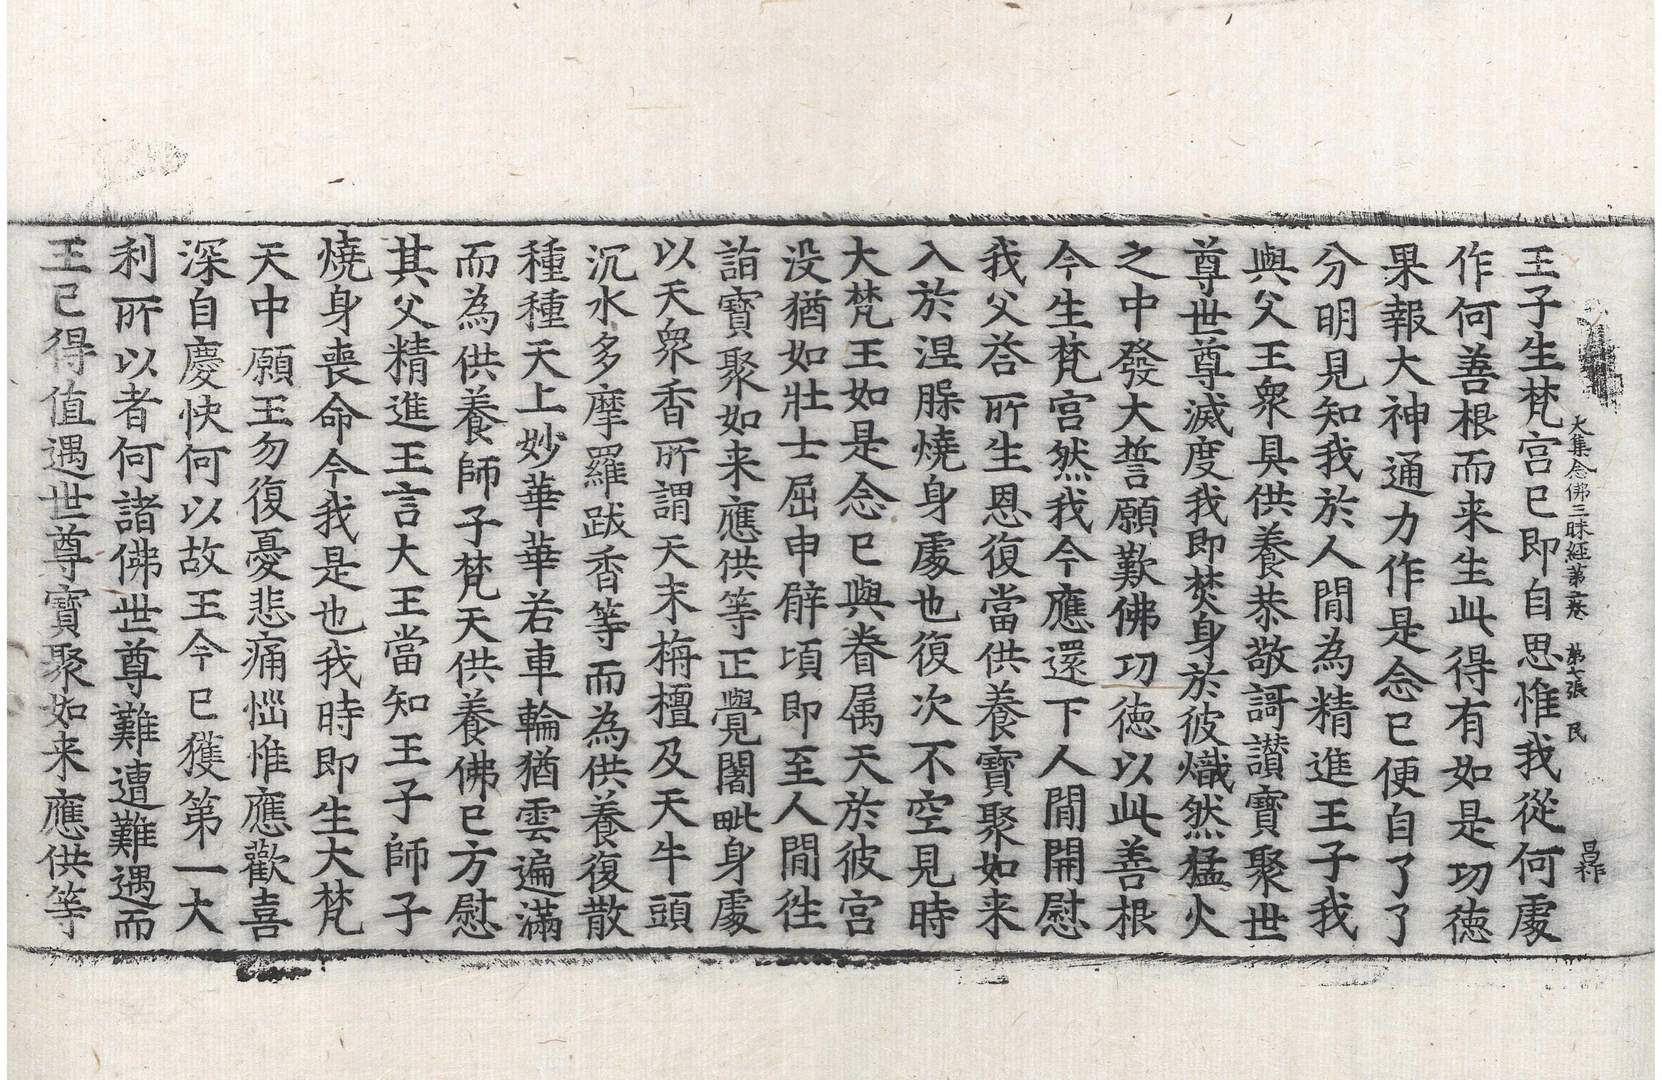 大集念佛三昧經第二卷 第七張 民 昌祚
王子生梵宮已即自思惟我從何處
作何善根而来生此得有如是功徳
果報大神通力作是念已便自了了
分明見知我於人間為精進王子我
與父王衆具供養恭敬謌讃寶聚世
尊世尊滅度我即焚身於彼熾然猛火
之中發大誓願歎佛功徳以此善根
今生梵宮然我今應還下人間開慰
我父荅所生恩復當供養寶聚如来
入於涅槃燒身處也復次不空見時
大梵王如是念已與眷属天於彼宮
没猶如壯士屈申臂頃即至人間徃
詣寶聚如来應供等正覺闍毗身處
以天衆香所謂天末栴檀及天牛頭
沉水多摩羅跋香等而為供養復散
種種天上妙華華若車輪猶雲遍滿
而為供養師子梵天供養佛已方慰
其父精進王言大王當知王子師子
燒身喪命今我是也我時即生大梵
天中願王勿復憂悲痛惱惟應歡喜
深自慶快何以故王今已獲第一大
利所以者何諸佛世尊難遭難遇而
王已得值遇世尊寶聚如来應供等